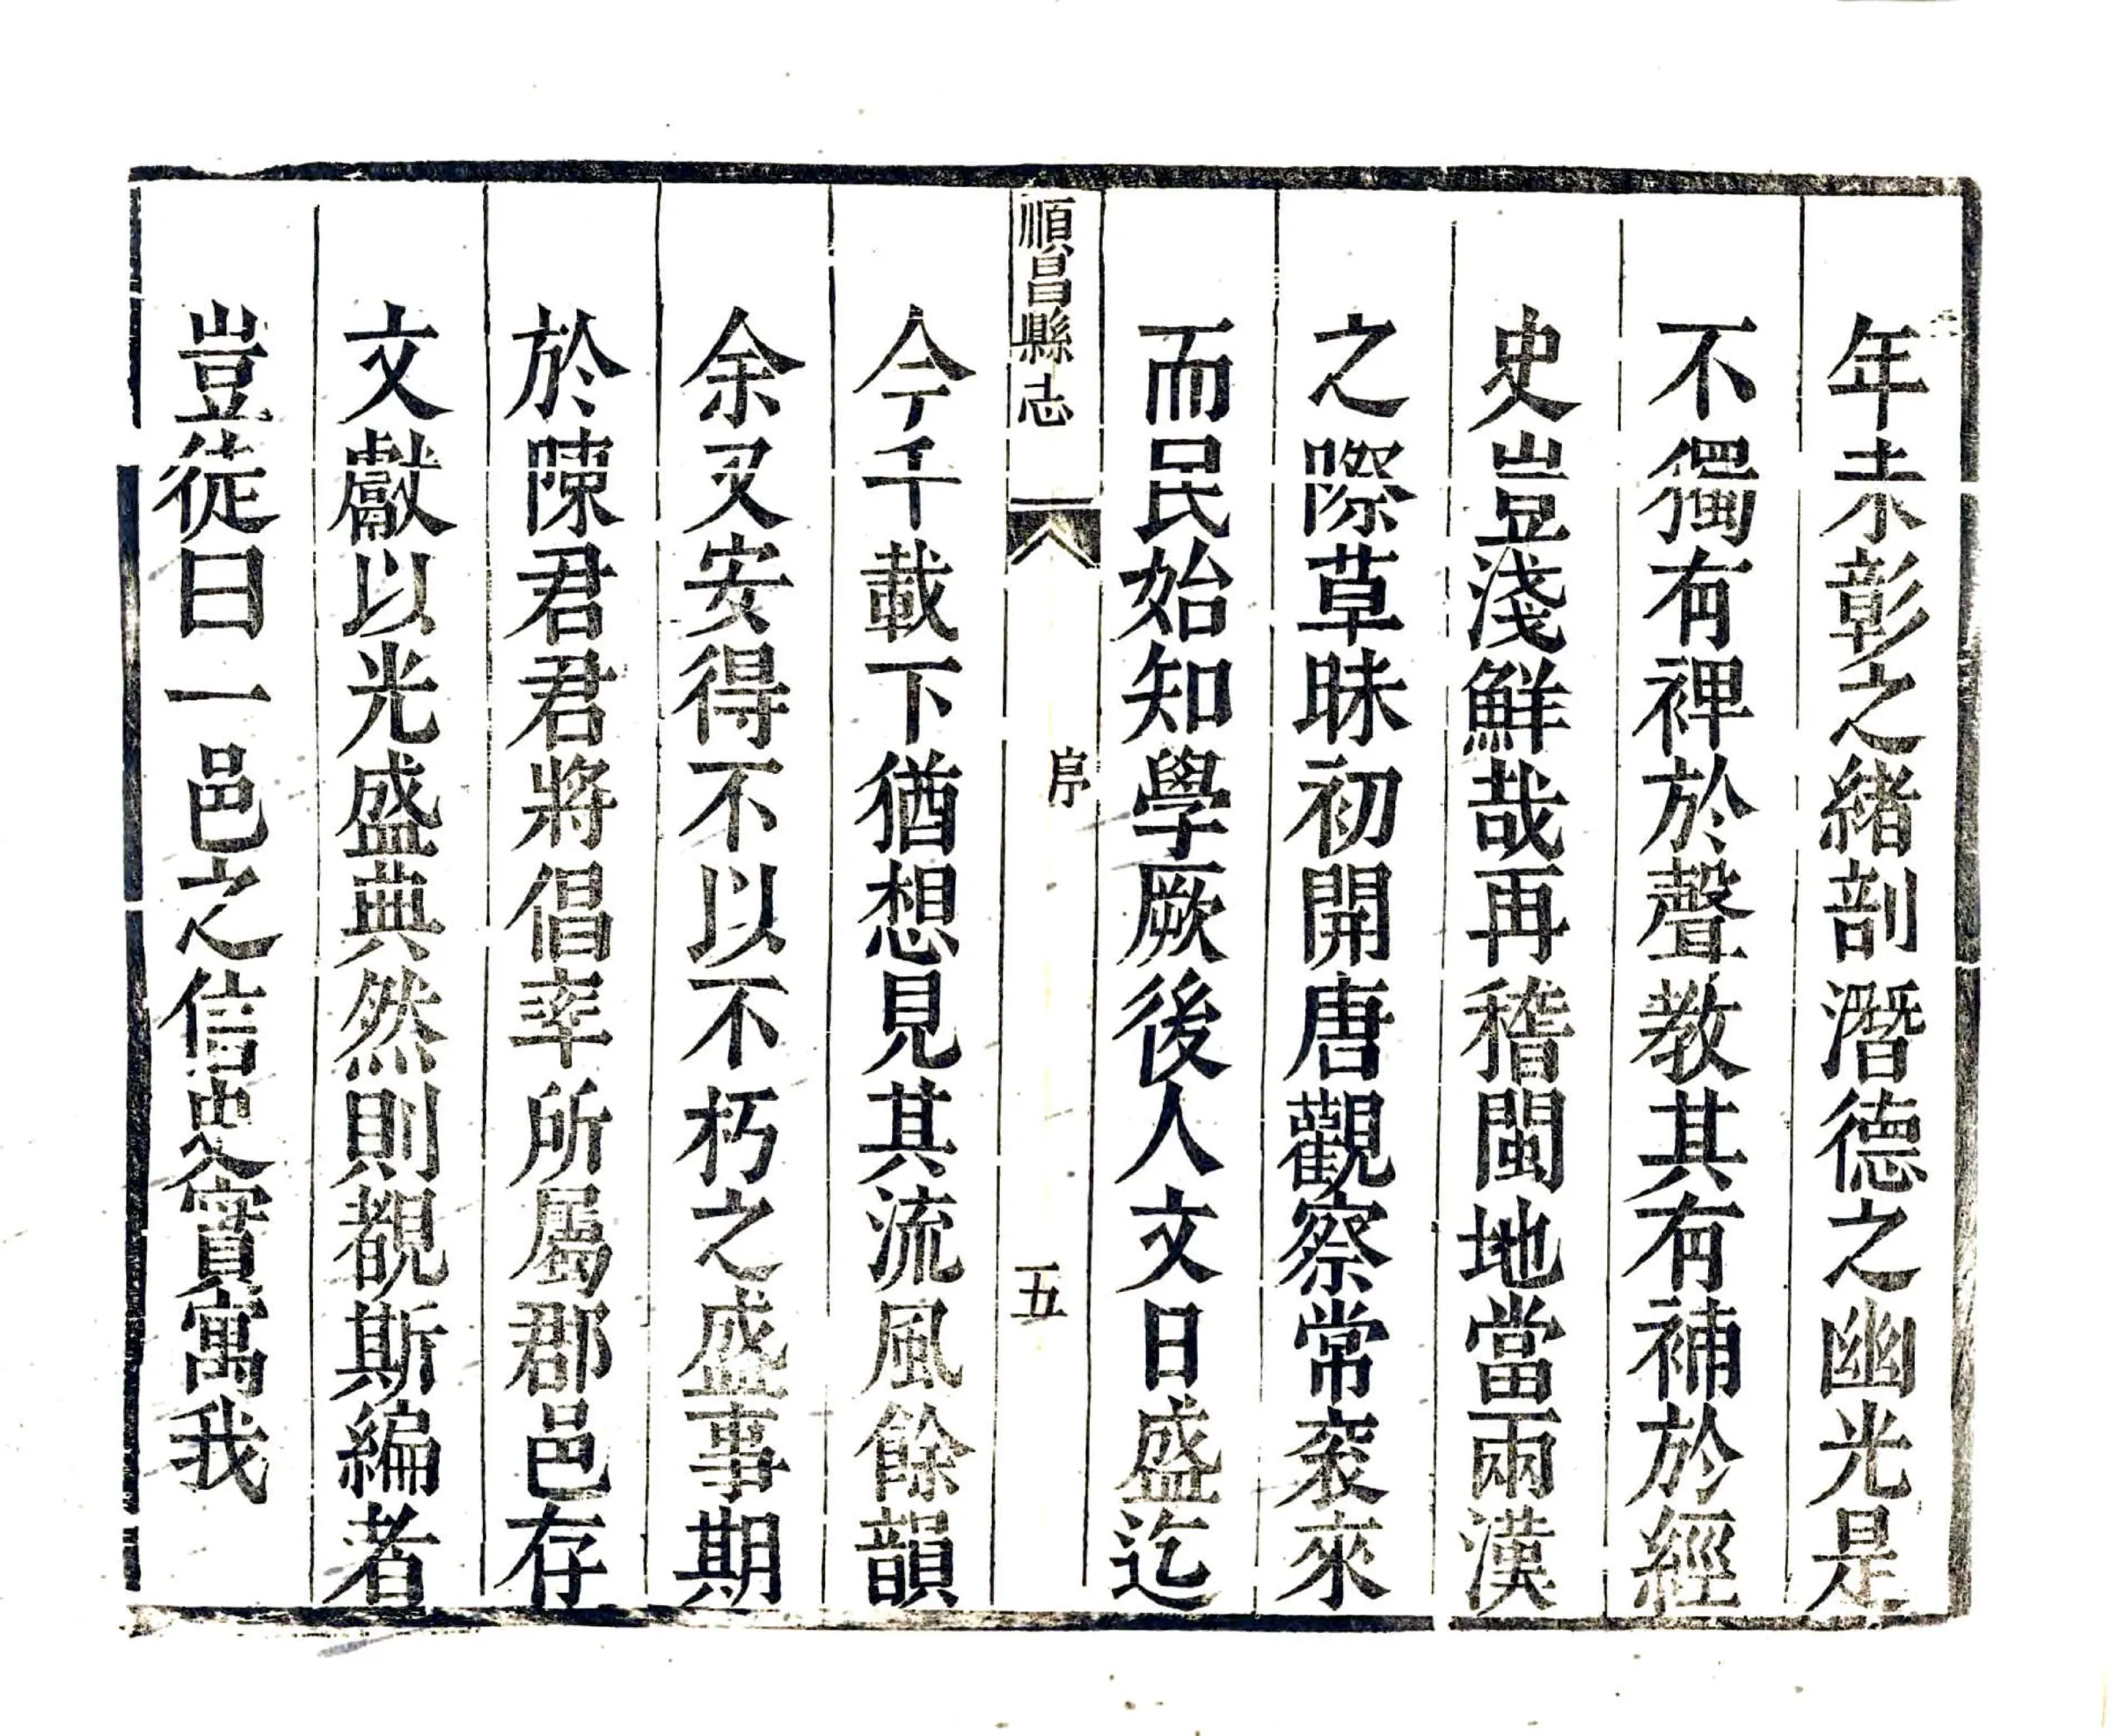 年未彰之緒剖潛德之幽光是
不獨有裨於聲教其有補於經
史豈淺鮮哉再稽閩地當兩漢
之際草昧初開唐觀察常袞來
而民始知學厥後人文日盛迄
順昌縣志
序
五
今千載下猶想見其流風餘韻
余又安得不以不朽之盛事期
於陳君君將倡率所屬郡邑存
文獻以光盛典然則覩斯編者
豈徒曰一邑之信史實寓我